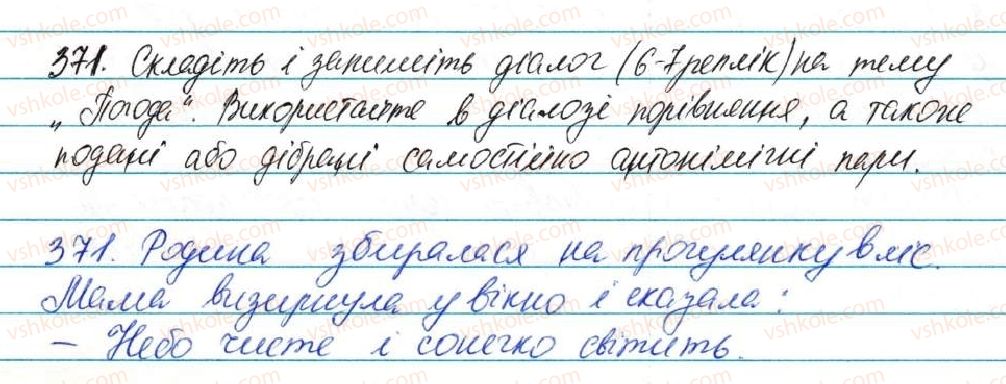 371. Складіть і запишіть діалог (6-7 реплік) на тему
„Погода“. Використайте в діалозі порівняння, а також
подані або дібрані самостійно антонімічні пари.
371. Родина збиралася на прогулянку в ліс.
Мама визирнула у вікно і сказала:
– Небо чисте і сонечко світить.